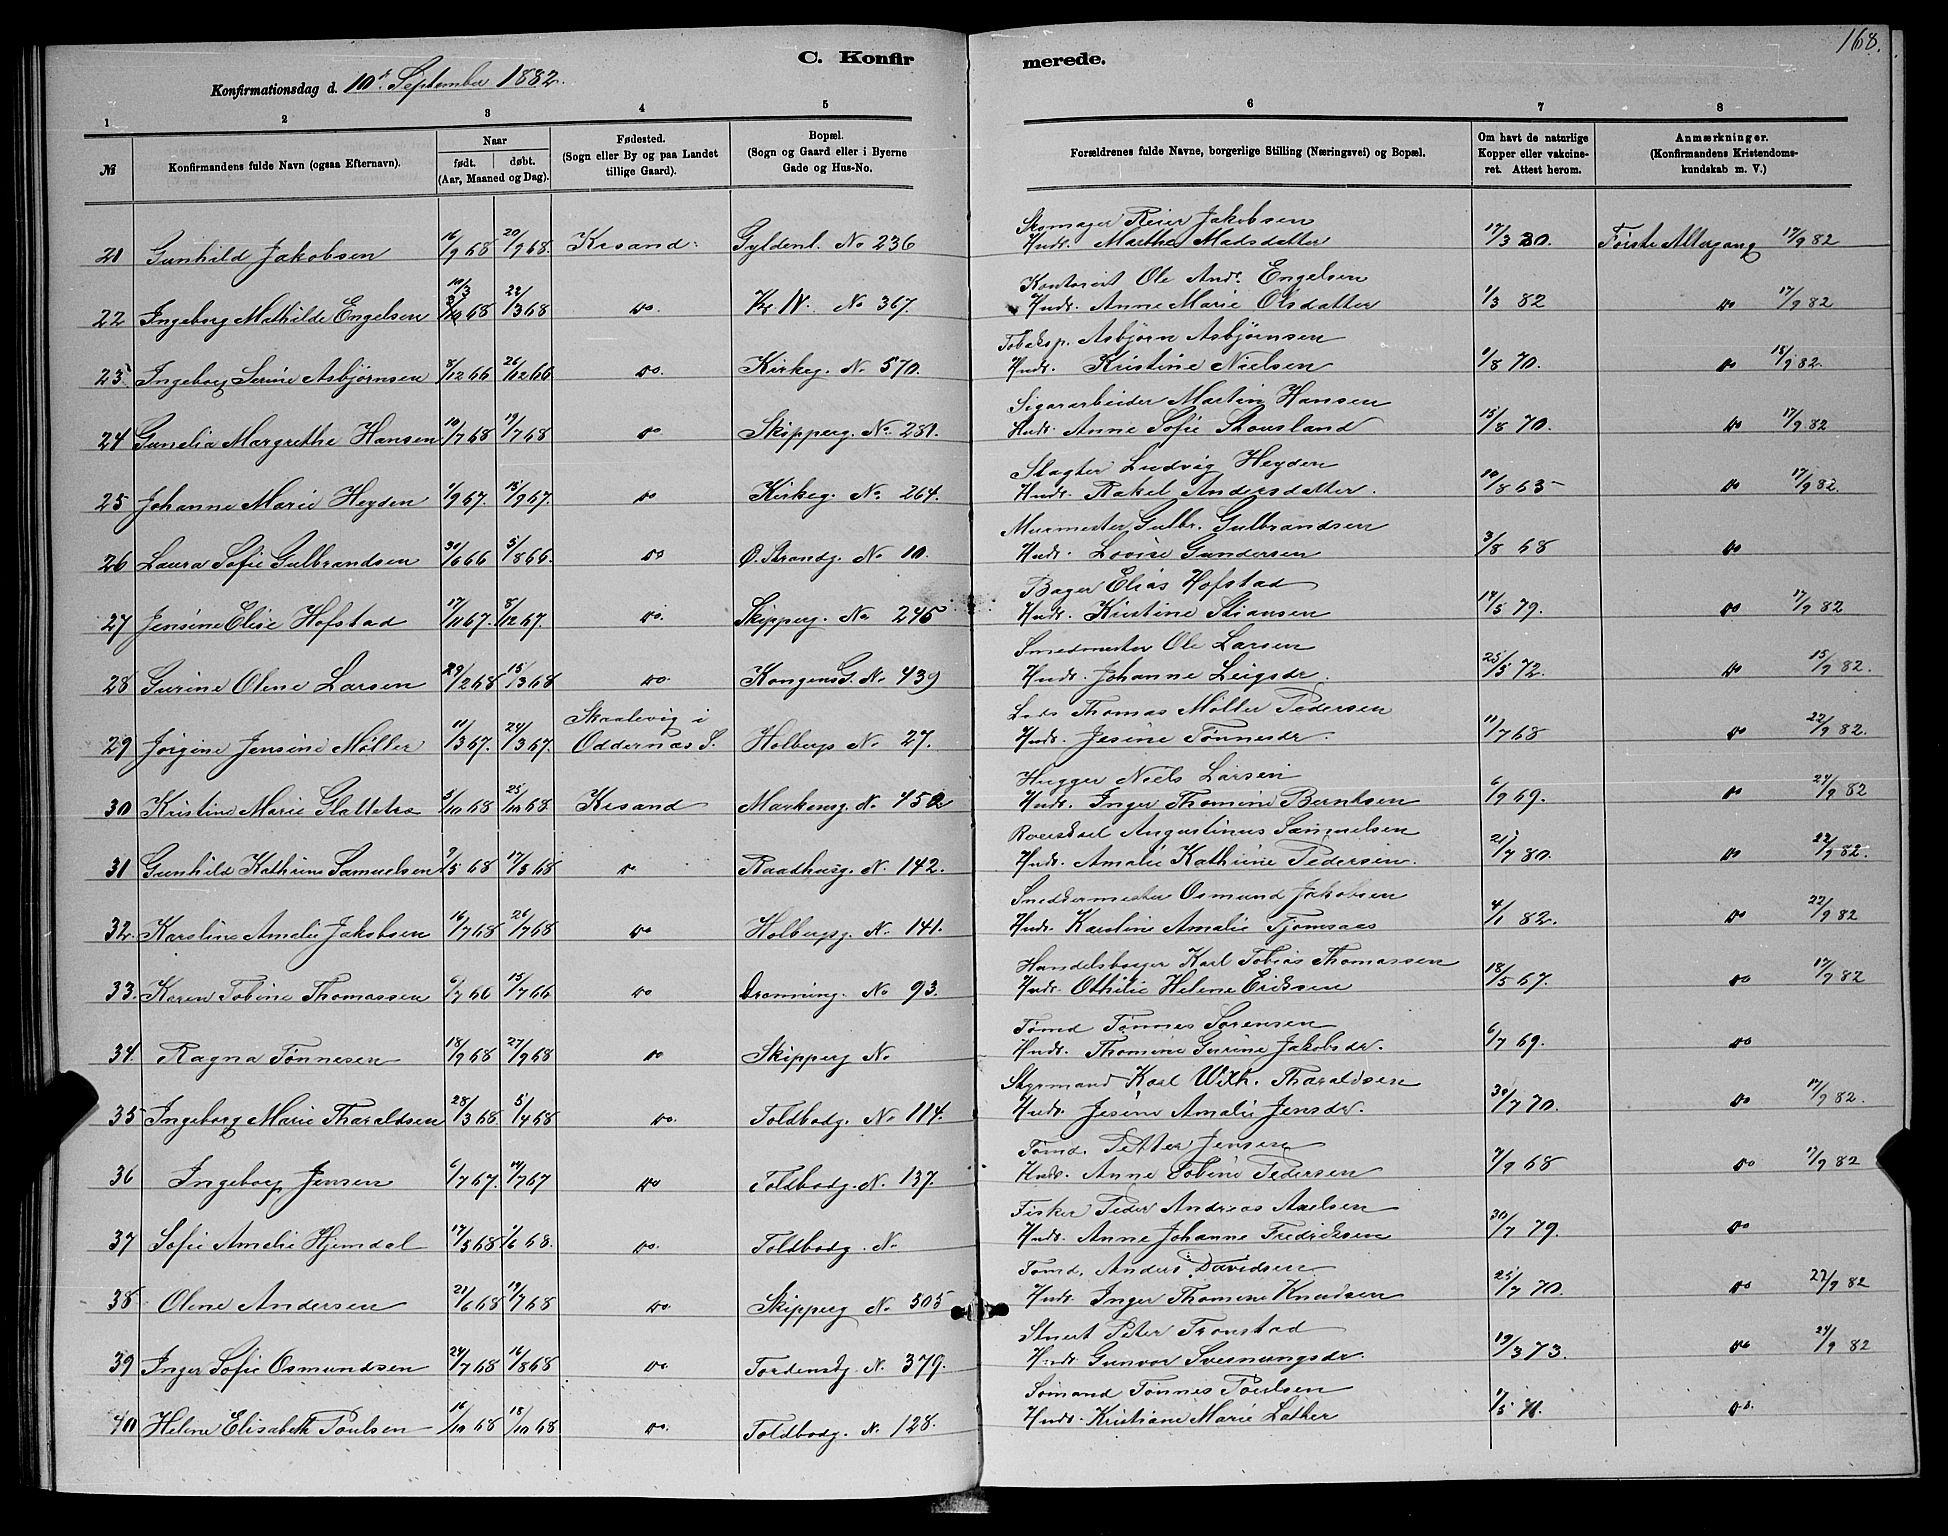 168.
C. Konfirmerede.
Konfirmationsdag d. 10de September 1882.
1 2 3 4 5 6 7 8
№ Konfirmandens fulde Navn (ogsaa Efternavn). Naar født. døbt. (Aar, Maaned og Dag). Fødested. (Sogn eller By og paa Landet tillige Gaard). Bopæl. (Sogn og Gaard eller i Byerne Gade og Hus-No. Forældrenes fulde Navne, borgerlige Stilling (Næringsvei) og Bopæl. Om havt de naturlige Kopper eller vakcineret. Attest herom. Anmærkninger. (Konfirmandens Kristendomskundskab m. V.)
Skomager Reier Jakobsen
21 Gunhild Jakobsen 16/9 68 20/9 68. Krsand: Gyldenl. No 236 Hudr. Marthe Madsdatter 17/3 80. Første Altergang 17/9 82
Kontorist Ole Andr. Engelsen
22 Ingeborg Mathilde Engelsen 10/3 68 22/3 68 do. Kr. N. No 367. Hudr. Anne Marie Olsdatter 1/3 82 do 17/9 82
Tobaksp. Asbjørn Asbjørnsen
23. Ingeborg Serine Asbjørnsen 8/12 66 26/12 66 do. Kirkeg. No 570. Hudr. Kristine Nielsen 1/8 70. do 15/9 82.
Sigararbeider Martin Hansen
24 Gunelia Margrethe Hansen 10/7 68 19/7 68 do Skipperg. No 281. Hudr. Anne Sofie Stousland 15/8 70. do 17/9 82
Slagter Ludvig Heyden
25 Johanne Marie Heyden 1/9 67. 15/9 67. do Kirkeg. No 264. Hudr. Rakel Andersdatter. 10/8 65 do 17/9 82.
Murmester Gulbr. Gulbrandsen
26 Laura Sofie Gulbrandsen 30/6 66 5/8 66. do Ø. Strandg. No 10. Hudr. Lovise Gundersen 3/8 68 do
Bager Elias Hofstad
27 Jensine Elise Hofstad 17/11 67. 8/12 67. do. Skipperg. No 245 Hudr. Kristine Stiansen 14/5 79. do 17/9 82
Smedmester Ole Larsen
28 Gurine Olene Larsen 29/2 68 15/3 68 do. Kongens G. No 439 Hudr. Johanne Leigsdr. 25/5 72. do 15/9 82.
Skaalevig i Lods Thomas Møller Pedersen
29 Jørgine Jensine Møller 11/3 67. 24/3 67. Oddernæs S. Holbergs No 27. Hudr. Jesine Tønnesdr. 11/7 68 do 22/9 82.
Hugger Niels Larsen
30 Kristine Marie Glattetre 5/10 68 25/10 68. Krsand Markensg. No 452 Hudr. Inger Thomine Berntsen 6/9 69. do 24/9 82
Augustinus Samuelsen
31 Gunhild Kathrine Samuelsen 7/5 68 17/5 68 do Raadhusg. No 142. Hudr. Amalie Kathrine Pedersen. 21/7 80. do 22/9 82.
Sneddermester Osmund Jakobsen
32. Karoline Amalie Jakobsen 16/7 68 26/7 68 do Holbergsg. No 141. Hudr. Karoline Amalie Tjomsaas 4/1 82. do 22/9 82
Handelsborger Karl Tobias Thomassen
33. Karen Tobine Thomassen 6/7 66 15/7 66 do Dronning. No 93. Hudr. Othilie Helene Eriksen 18/5 67. do 17/9 82
Tømd Tønnes Sørensen
34. Ragna Tønnesen 18/9 68 27/9 68 do Skipperg No Hudr. Thomine Gurine Jakobsdr. 6/7 69. do
Styrmand Karl Wilh. Tharaldsen
35 Ingeborg Marie Tharaldsen 28/3 68 5/4 68 do. Toldbodg. No 114. Hudr. Jesine Amalie Jensdr. 30/7 70. do 17/9 82.
Tømd. Petter Jensen
36 Ingeborg Jensen 6/7 67. 14/7 67 do Toldbodg. No 137. Hudr. Anne Tobine Pedersen 7/9 68 do 17/9 82
Fisker Peder Andreas Axelsen
37 Sofie Amalie Hjemdal 17/5 68 1/6 68. do. Toldbodg. No Hudr. Anne Johanne Fredriksen 30/7 79. do
Tømd. Anders Davidsen
38 Olene Andersen 21/6 68 19/7 68 do. Skipperg No 305 Hudr. Inger Thomine Knudsen 25/7 70. do 22/9 82
Stuert Peter Tronstad
39 Inger Sofie Osmundsen 24/7 68 16/8 68 do. Tordenskg. No 379. Hudr. Gunvor Sveinungsdr. 19/3 73. do 24/9 82
Sømand Tønnes Poulsen
40 Helene Elisabeth Poulsen 16/10 68 18/10 68 do. Toldbodg. No 128. Hudr. Kristiane Marie Lather 1/5 71. do.